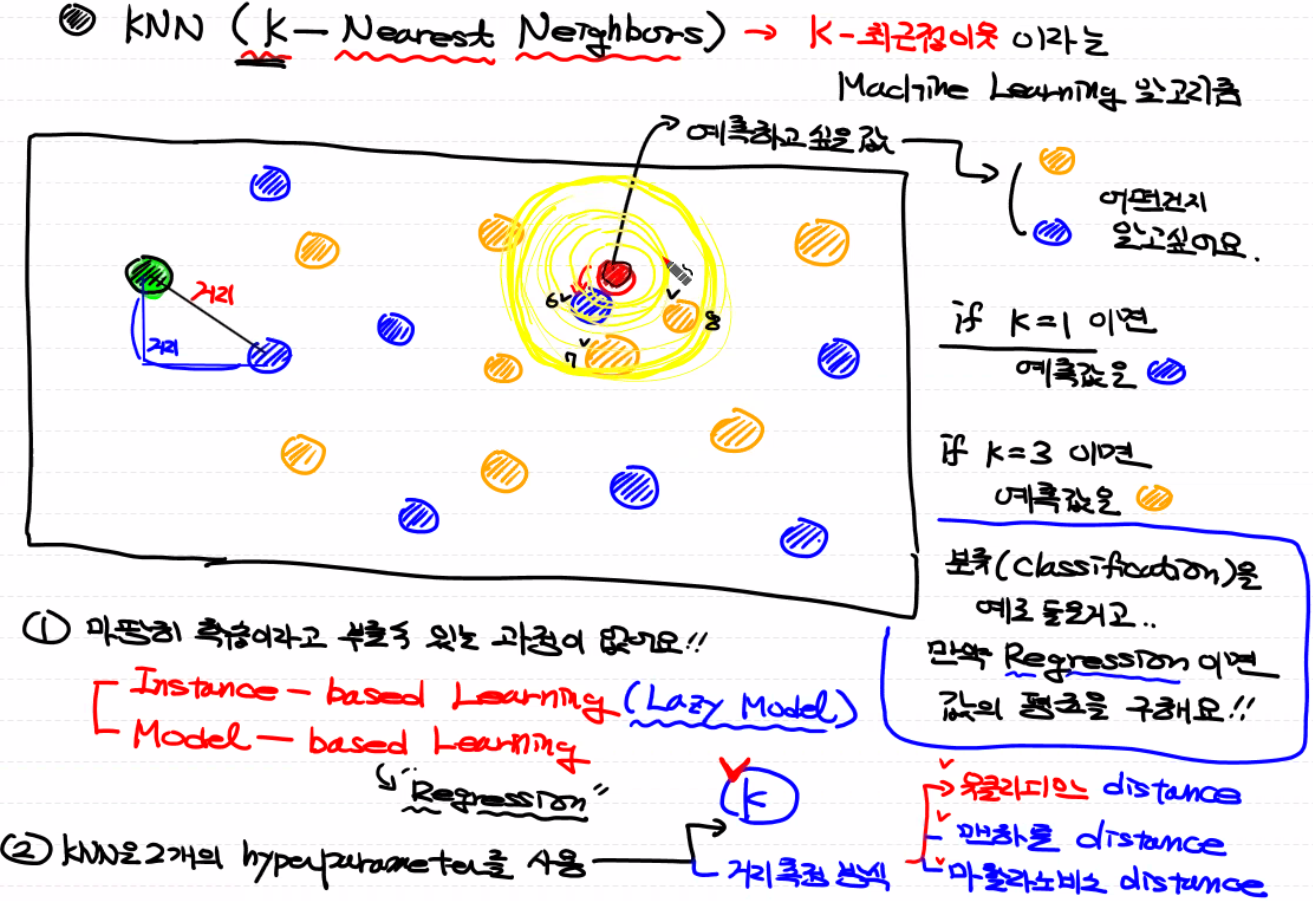 KNN (K - Nearest Neighbors) → K-최근접이웃 이라는
Machine Learning 알고리즘
예측하고 싶은 값
어떤건지
알고싶어요.
거리
거리
6
7
8
if K=1 이면
예측값은
if K=3 이면
예측값은
분류(Classification)을
예로 들은거고..
만약 Regression 이면
값의 평균을 구해요!!
① 마땅히 학습이라고 부를수 있는 과정이 없어요!!
Instance - based Learning (Lazy Model)
Model - based Learning
"Regression"
② KNN은 2개의 hyperparameter를 사용
K
거리측정 방식
유클리디안 distance
맨하튼 distance
마할라노비스 distance